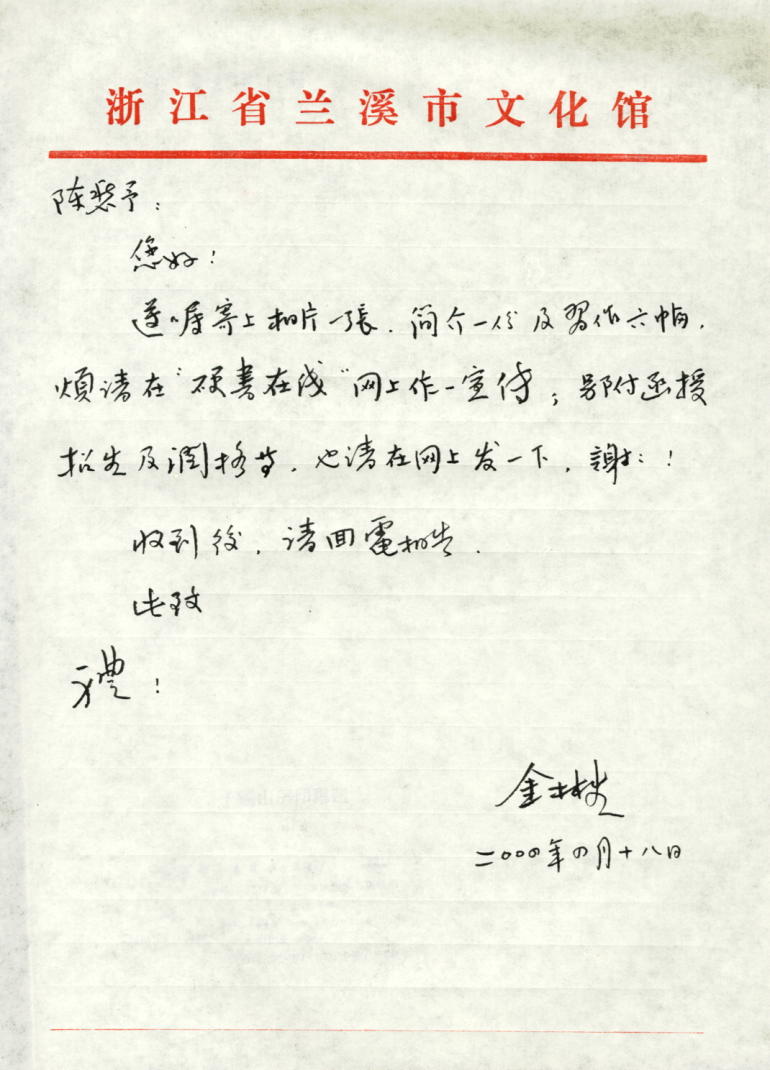 浙江省兰溪市文化馆
陈愁予：
您好！
遵嘱寄上相片一張．简介一份及習作六幅．
煩请在“硬書在线”网上作一宣传；另附函授
招生及潤格等．也请在网上发一下．謝：！
收到後．请回電相告．
此致
礼！
金林
二〇〇〇年四月十八日